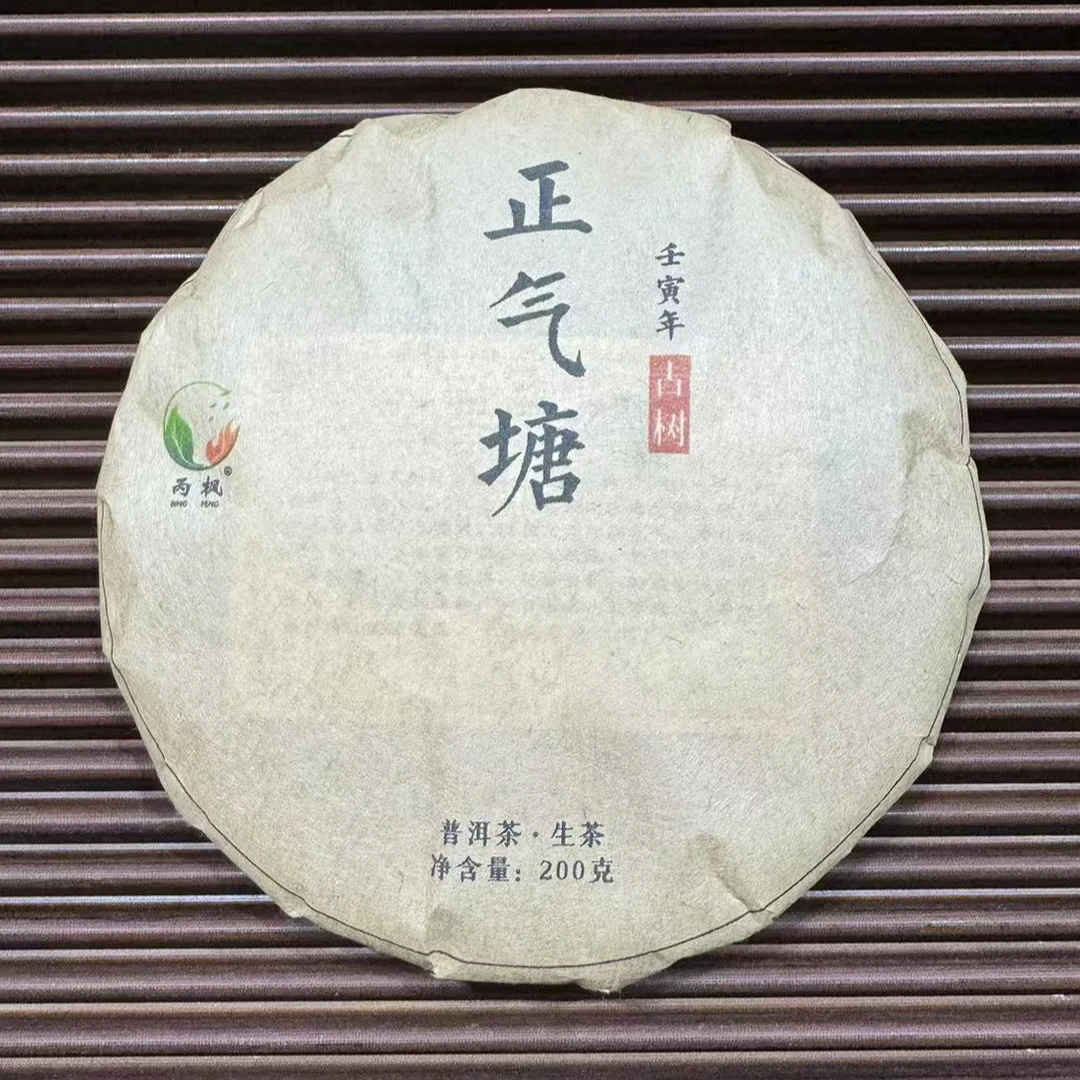 正气塘
壬寅年
古树
丙枫®
BING FENG
普洱茶·生茶
净含量：200克